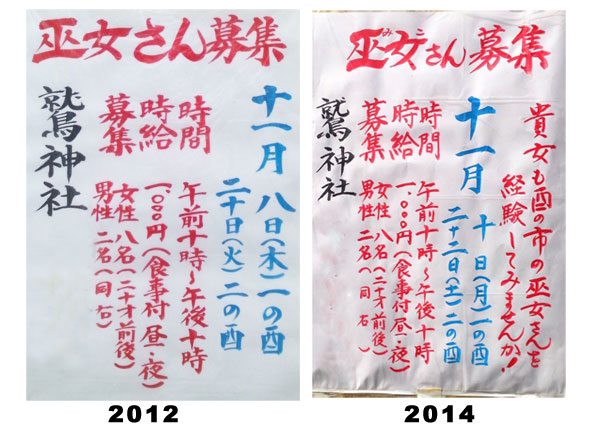 巫女さん募集
十一月 八日(木)一の酉
二十日(火)二の酉
時間 午前十時～午後十時
時給 一、〇〇〇円(食事付昼・夜)
募集 女性 八名(二十才前後)
男性 二名(同右)
鷲神社
2012
巫女さん募集
みこ
貴女も酉の市の巫女さんを
経験してみませんか!
十一月 十日(月)一の酉
二十二日(土)二の酉
時間 午前十時～午後十時
時給 一、〇〇〇円(食事付昼・夜)
募集 女性 八名(二十才前後)
男性 二名(同右)
鷲神社
2014